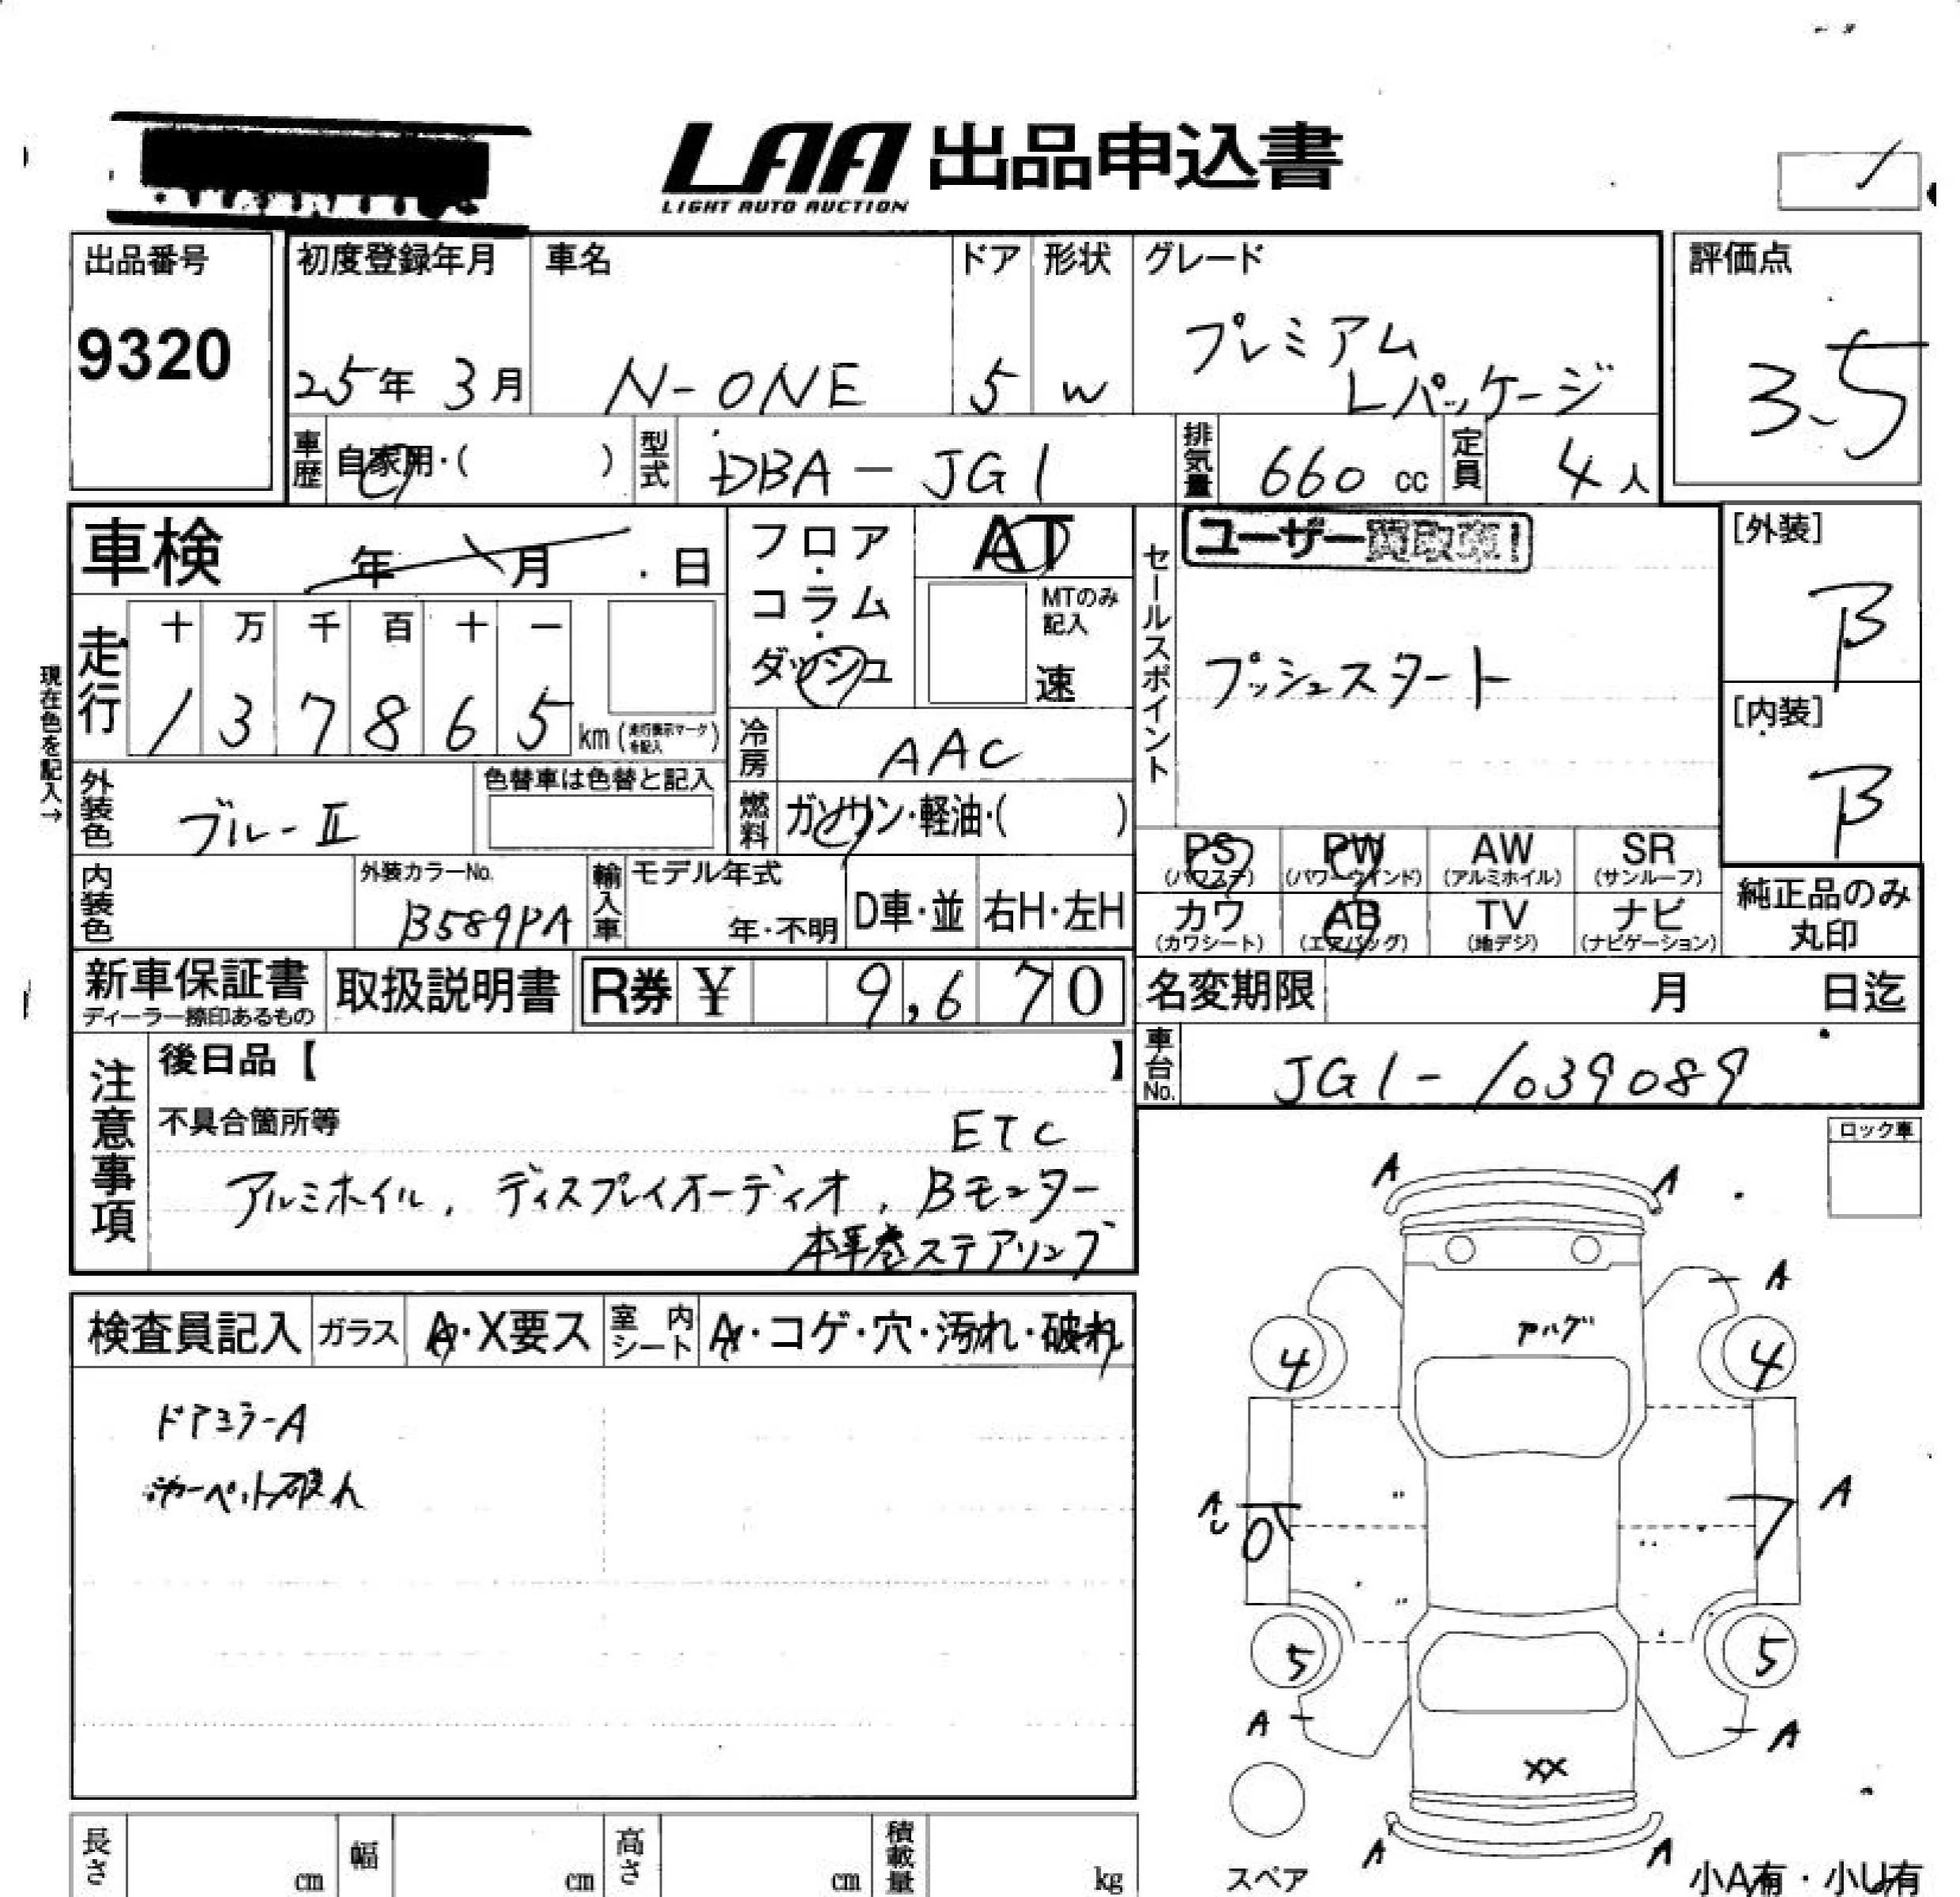 LAA 出品申込書
LIGHT AUTO AUCTION
出品番号
9320
初度登録年月
25年 3月
車名
N-ONE
ドア
5
形状
W
グレード
プレミアム
Lパッケージ
評価点
3.5
車歴 自家用・( )
型式 DBA-JG1
排気量 660 cc
定員 4人
車検 年 月 日
フロア・コラム・ダッシュ
AT
MTのみ記入
速
セールスポイント
ユーザー買取車!
プッシュスタート
[外装]
B
[内装]
B
現在色を記入→
走行
十 万 千 百 十 一
1 3 7 8 6 5 km (走行表示マークを記入)
冷房 AAC
燃料 ガソリン・軽油・( )
外装色 ブルーII
色替車は色替と記入
内装色
外装カラーNo.
B589PA
輸入車
モデル年式
年・不明
D車・並
右H・左H
PS (パワステ)
PW (パワーウインド)
AW (アルミホイル)
SR (サンルーフ)
カワ (カワシート)
AB (エアバッグ)
TV (地デジ)
ナビ (ナビゲーション)
純正品のみ
丸印
新車保証書
ディーラー捺印あるもの
取扱説明書
R券 ¥ 9,670
名変期限 月 日迄
車台No. JG1-1039089
注意事項
後日品【 】
不具合箇所等
ETC
アルミホイル, ディスプレイオーディオ, Bモニター
本革巻ステアリング
ロック車
検査員記入
ガラス A・X要ス
室内シート A・コゲ・穴・汚れ・破れ
ドアミラーA
カーペット破れ
A A
A
4 4
A
A
7
5 5
A A
XX
A A
スペア
小A有・小U有
長さ cm
幅 cm
高さ cm
積載量 kg